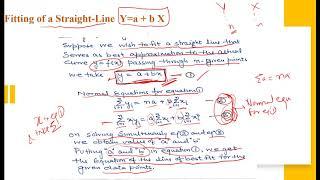 Fitting of a Straight-Line Y=a + b X
Suppose we wish to fit a straight line that
serves as best approximation to the actual
curve y=f(x) passing through n given points
we take y = a+bx —①
Normal Equations for equation①
∑ yi = na + b∑xi —②
∑ xiyi = a∑xi + b∑xi² —③
Normal equ
for eq①
∑a = na
On solving simultaneously eq② and eq③
we obtain value of 'a' and 'b'
Putting 'a' and 'b' in equation①, we get
the Equation of the line of best fit for the
given data points.